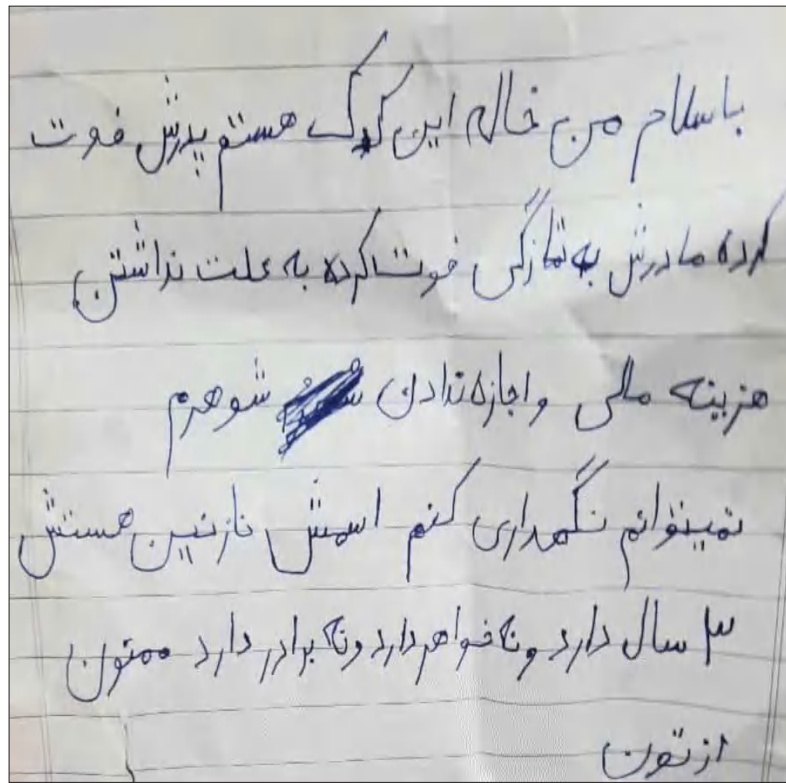 باسلام من خاله این کودک هستم پدرش فوت
کرده مادرش به تازگی فوت کرده به علت نداشتن
هزینه مالی و اجازه ندادن شوهرم
نمیتوانم نگهداری کنم اسمش نازنین هستش
۳ سال دارد و نه خواهر دارد و نه برادر دارد ممنون
ازتون